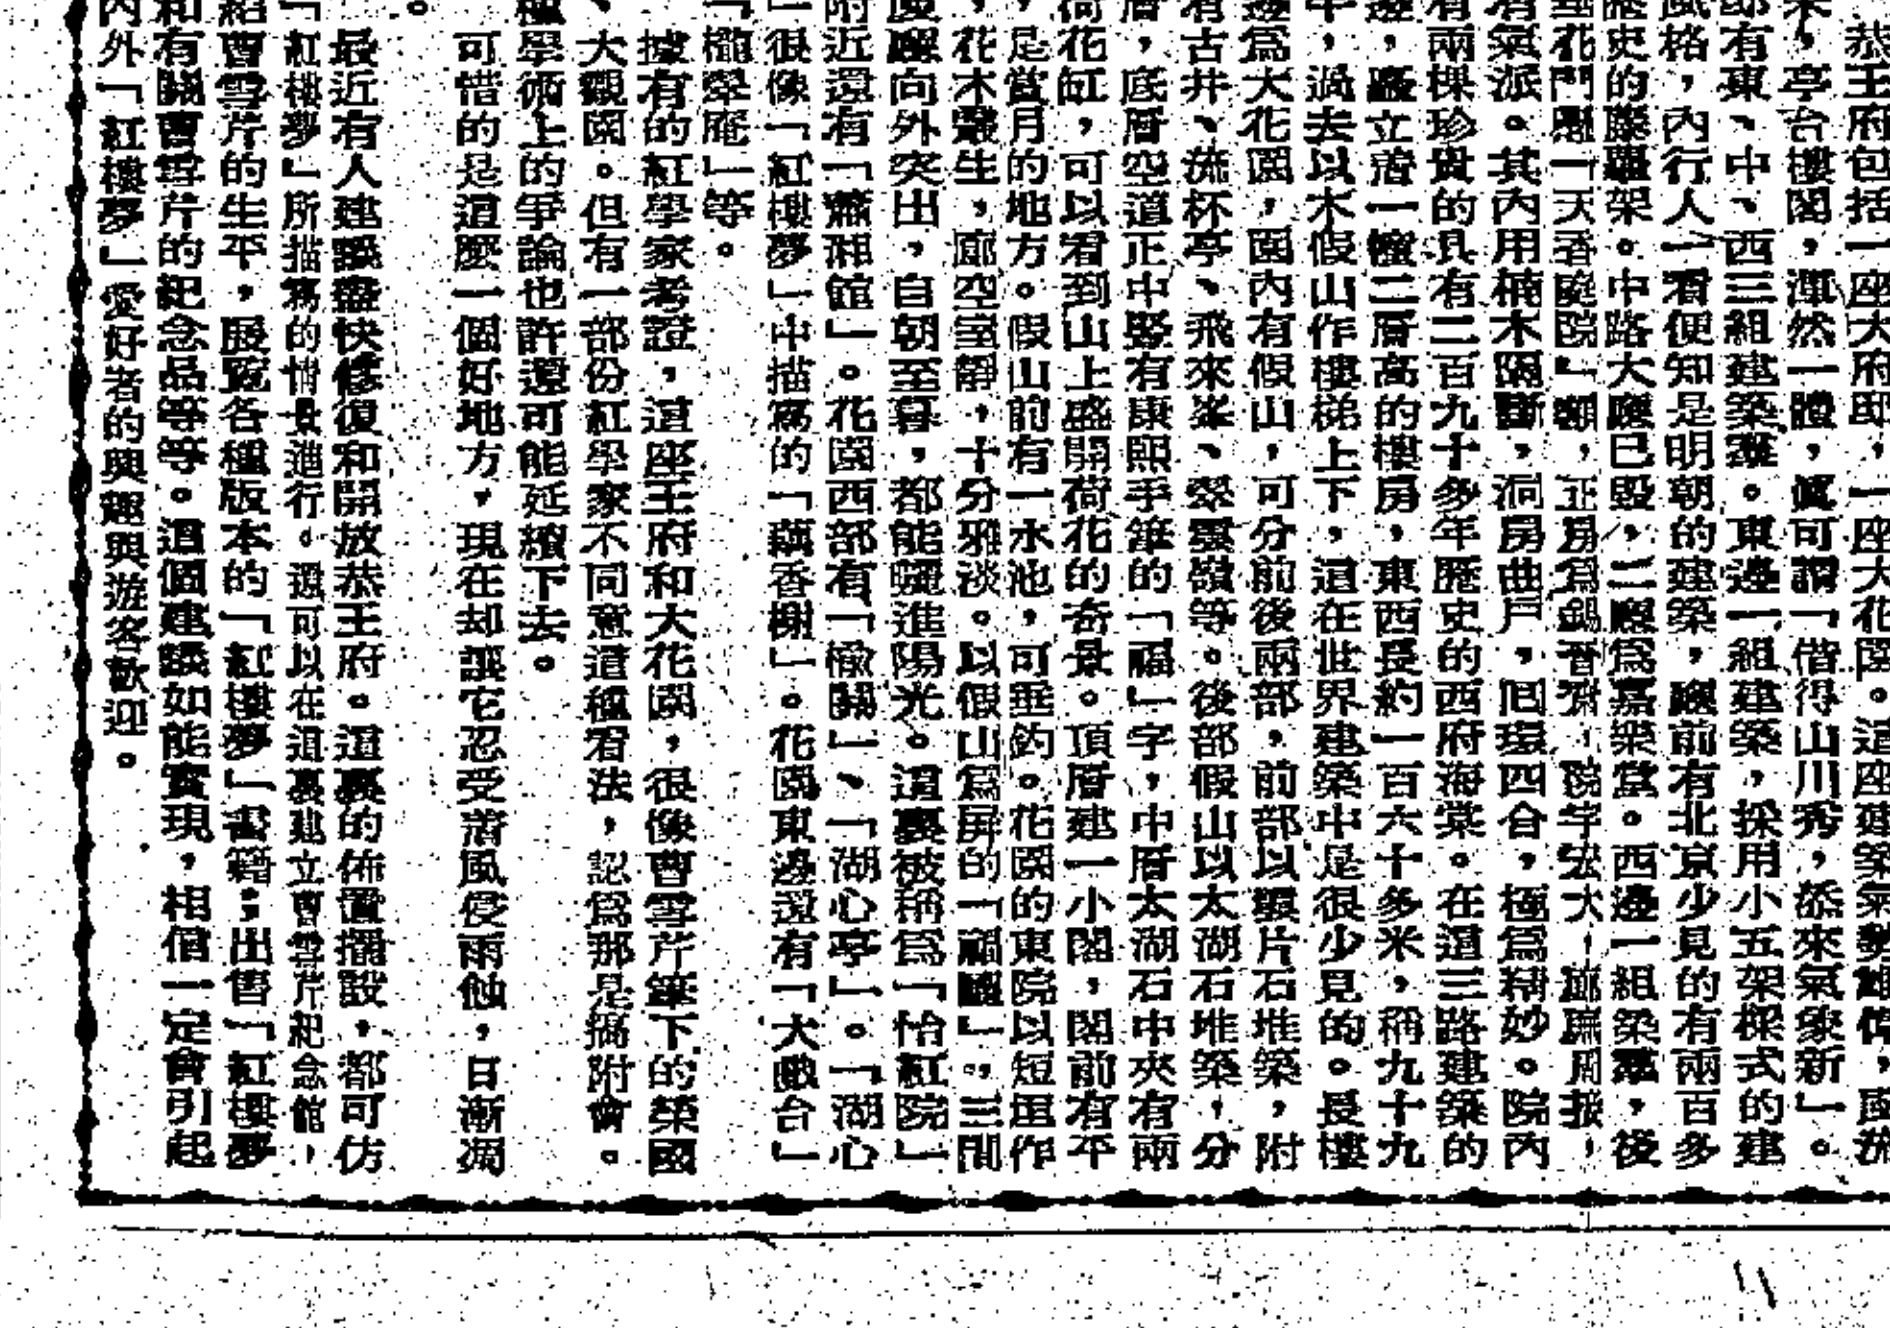 恭王府包括一座大府邸，一座大花園。這座建築氣勢雄偉，風流
亭台樓閣，渾然一體，眞可謂「借得山川秀，添來氣象新」。
邸有東、中、西三組建築羣。東邊一組建築，採用小五架樑式的建
風格，內行人一看便知是明朝的建築，廳前有北京少見的有兩百多
歷史的藤蘿架。中路大廳已毀，二廳爲嘉樂堂。西邊一組築羣，後
垂花門懸「天香庭院」額，正房爲錫晉齋，院宇宏大，廊廡周接，
有氣派。其內用楠木隔斷，洞房曲戶，回環四合，極爲精妙。院內
有兩棵珍貴的具有二百九十多年歷史的西府海棠。在這三路建築的
邊，廳立着一幢二層高的樓房，東西長約一百六十多米，稱九十九
半，過去以木假山作樓梯上下，這在世界建築中是很少見的。長樓
邊爲大花園，園內有假山，可分前後兩部，前部以雲片石堆築，附
有古井、流杯亭、飛來峯、翠雲嶺等。後部假山以太湖石堆築，分
層，底層空道正中竪有康熙手筆的「福」字，中層太湖石中夾有兩
荷花缸，可以看到山上盛開荷花的奇景。頂層建一小閣，閣前有平
，是賞月的地方。假山前有一水池，可垂釣。花園的東院以短垣作
，花木叢生，廊空室靜，十分雅淡。以假山爲屏的「福廳」，三間
廈廳向外突出，自朝至暮，都能曬進陽光。這裏被稱爲「怡紅院」
附近還有「瀟湘館」。花園西部有「楡關」、「湖心亭」。「湖心
」很像「紅樓夢」中描寫的「藕香榭」。花園東邊還有「大戲台」
「櫳翠庵」等。
據有的紅學家考證，這座王府和大花園，很像曹雪芹筆下的榮國
、大觀園。但有一部份紅學家不同意這種看法，認爲那是搞附會。
種學術上的爭論也許還可能延續下去。
可惜的是這麼一個好地方，現在却讓它忍受着風侵雨蝕，日漸凋
。
最近有人建議盡快修復和開放恭王府。這裏的佈置擺設，都可仿
「紅樓夢」所描寫的情景進行。還可以在這裏建立曹雪芹紀念館，
紹曹雪芹的生平，展覽各種版本的「紅樓夢」書籍；出售「紅樓夢
和有關曹雪芹的紀念品等等。這個建議如能實現，相信一定會引起
內外「紅樓夢」愛好者的興趣與游客歡迎。